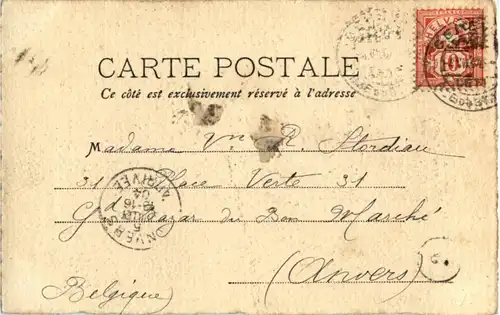 HELVETIA
10
CARTE POSTALE
Ce côté est exclusivement réservé à l'adresse
Madame Vve R. Stordiau
31 Place Verte 31
Gd Bazar du Bon Marché
(Anvers)
Belgique
ANVERS
ARRIVÉE